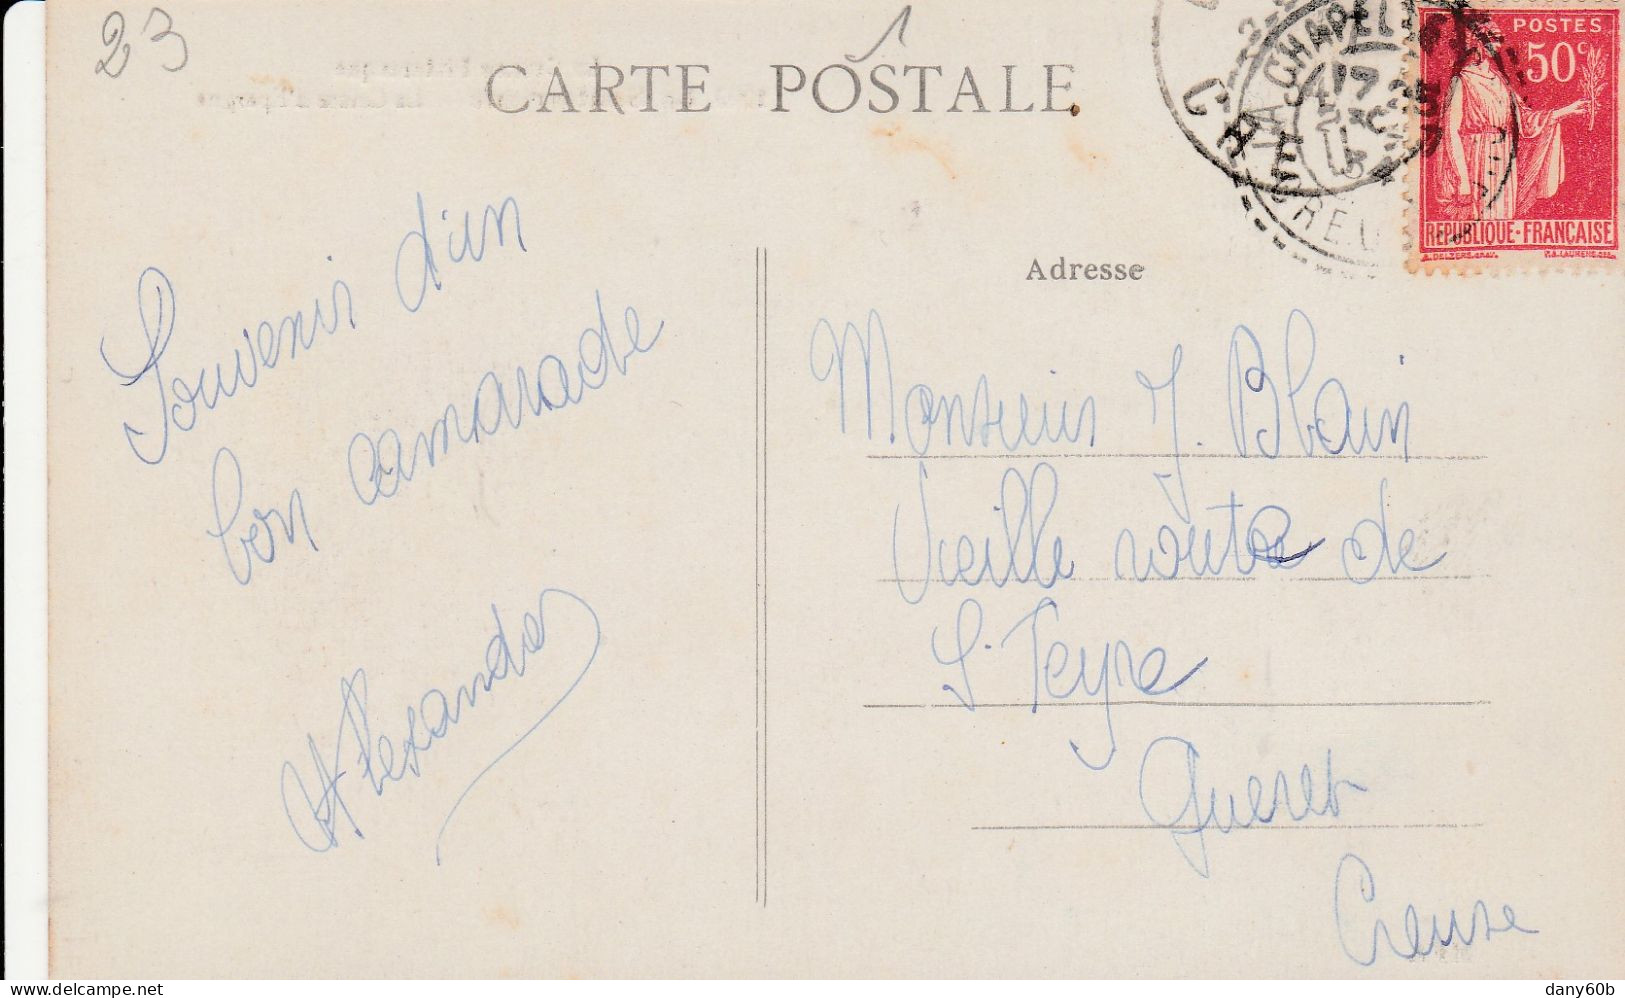 23
CARTE POSTALE
LA CHAPELLE
17
CREUSE
POSTES
50c
REPUBLIQUE-FRANÇAISE
Souvenir d'un
bon camarade
Alexandre
Adresse
Monsieur J. Blain
Vieille route de
St Feyre
Gueret
Creuse
delcampe.net
dany60b